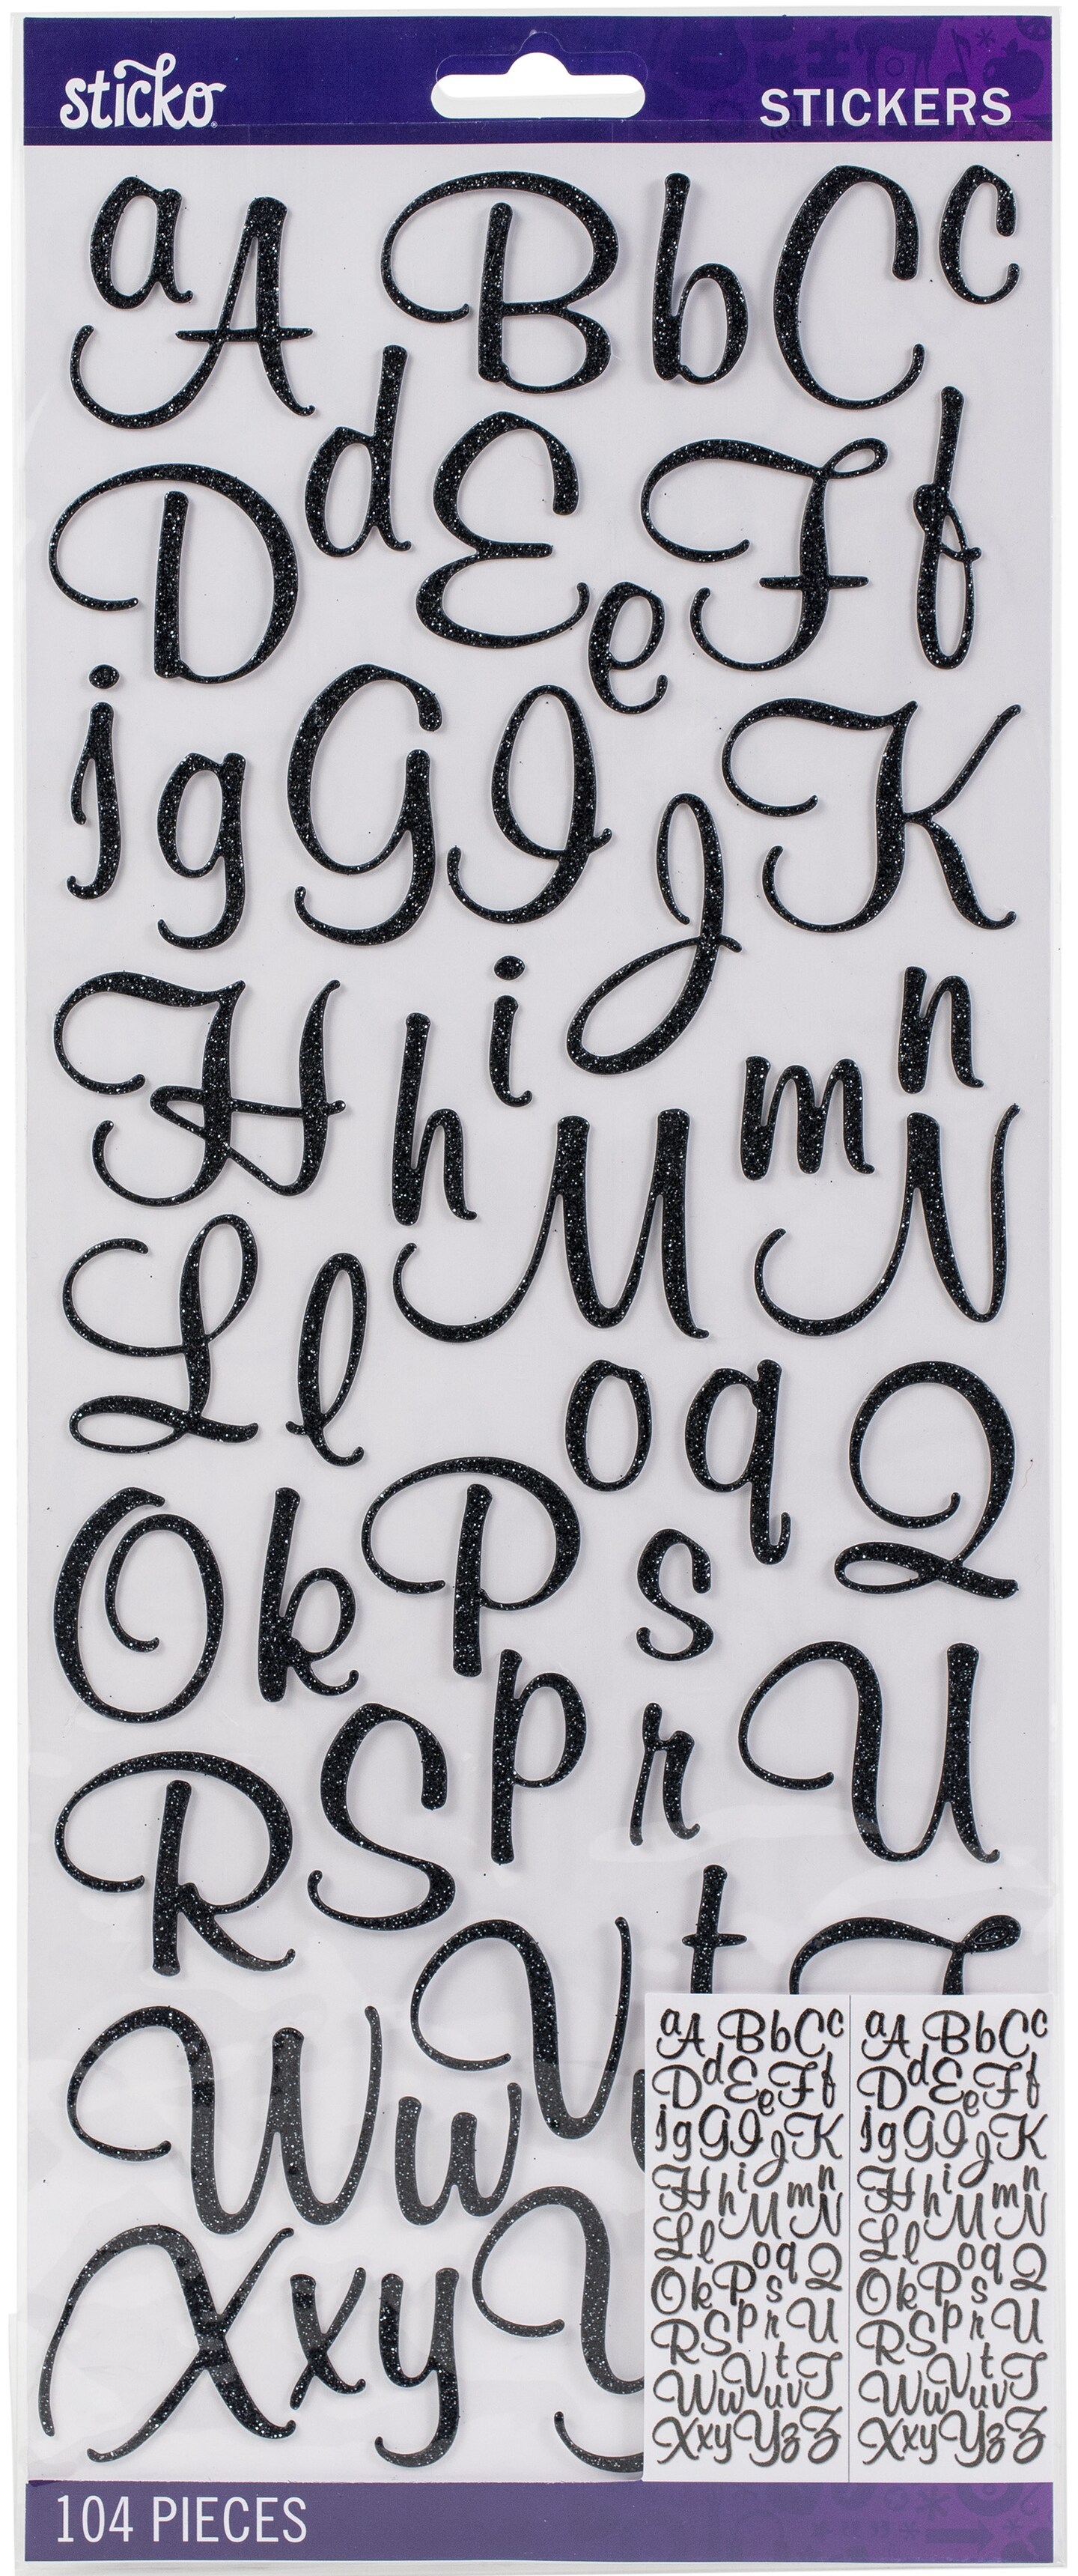 sticko
STICKERS
a A B b C c
D d E e F f
j g G I J K
H h i M m n N
L l o q Q
O k P p s U
R S r t T
W w V
X x y Y
a A B b C c
D d E e F f
j g G I J K
H h i M m n N
L l o q Q
O k P s
R S p r U
W w V t u v T
X x y Y z Z
a A B b C c
D d E e F f
j g G I J K
H h i M m n N
L l o q Q
O k P s
R S p r U
W w V t u v T
X x y Y z Z
104 PIECES